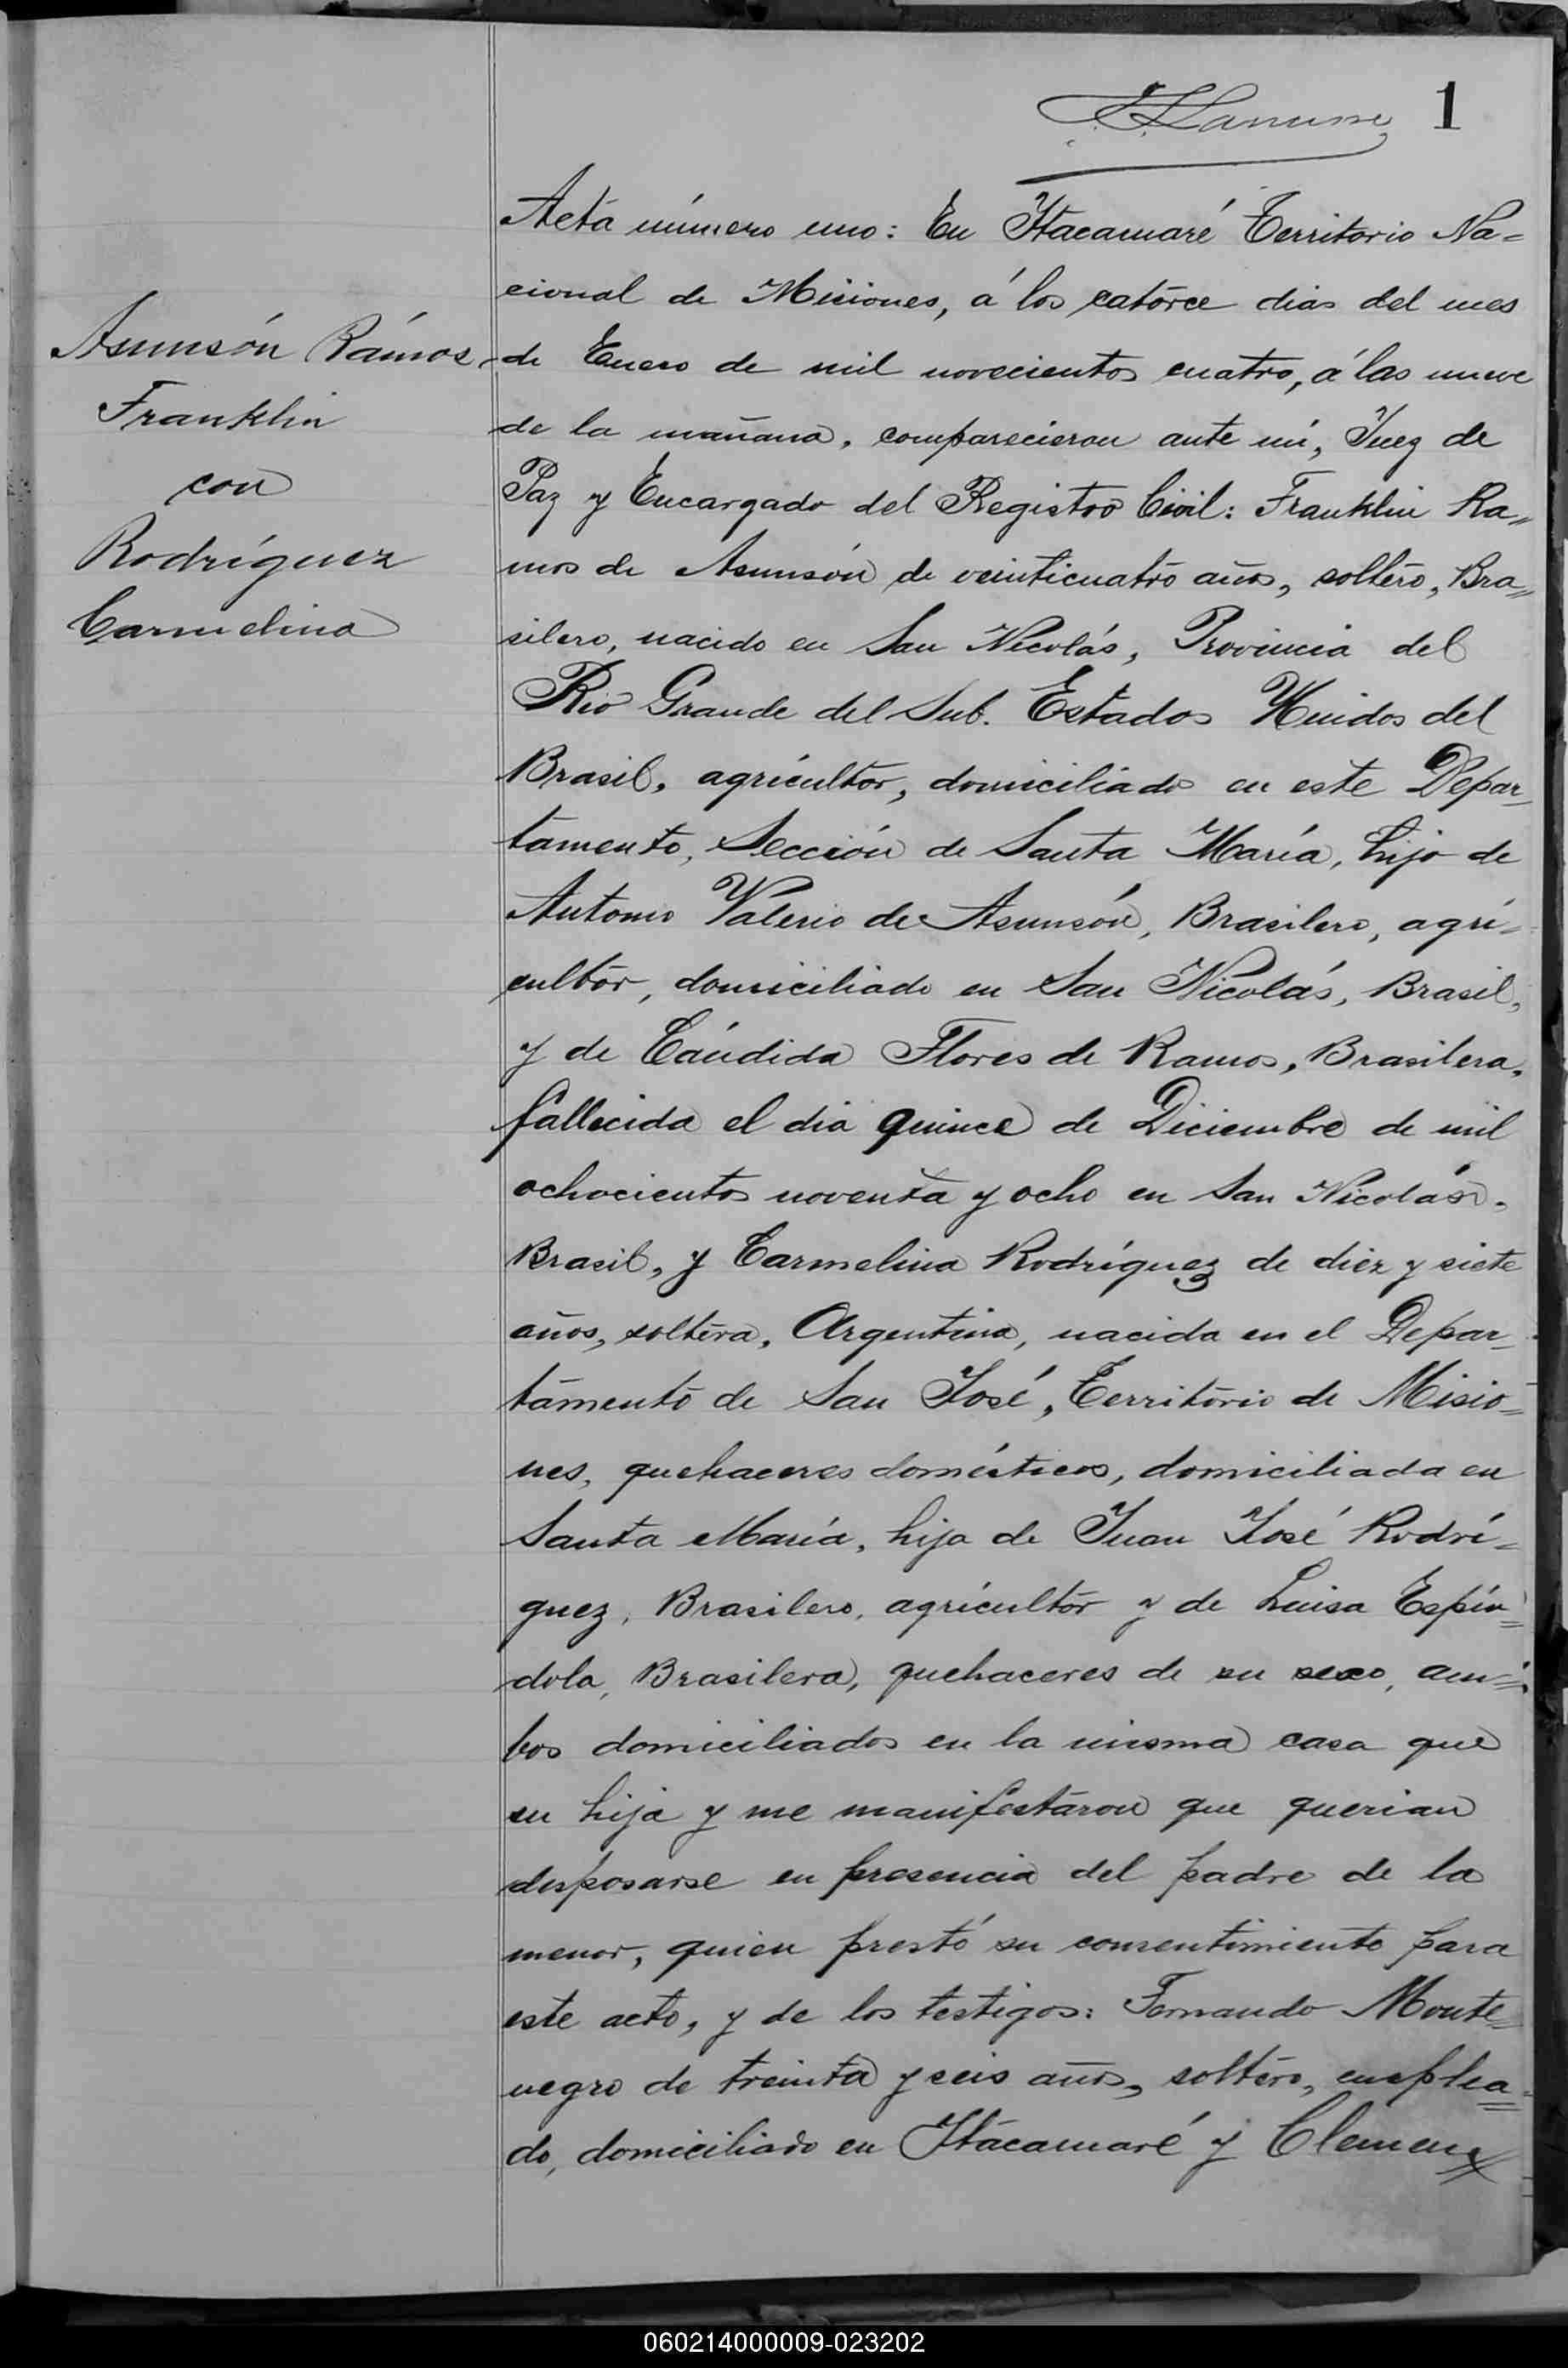 1
Acta número uno: En Itacamaré Territorio Na=
cional de Misiones, á los catorce dias del mes
de Enero de mil novecientos cuatro, á las nueve
de la mañana, comparecieron ante mi, Juez de
Paz y Encargado del Registro Civil: Franklin Ra=
mos de Asunsón de veinticuatro años, soltero, Bra=
silero, nacido en San Nicolás, Provincia del
Rio Grande del Sub. Estados Unidos del
Brasil, agricultor, domiciliado en este Depar=
tamento, Sección de Santa María, hijo de
Antonio Valerio de Asunsón, Brasilero, agri=
cultor, domiciliado en San Nicolás, Brasil,
y de Cándida Flores de Ramos, Brasilera,
fallecida el dia quince de Diciembre de mil
ochocientos noventa y ocho en San Nicolás,
Brasil, y Carmelina Rodríguez de diez y siete
años, soltera, Argentina, nacida en el Depar=
tamento de San José, Territorio de Misio=
nes, quehaceres domésticos, domiciliada en
Santa María, hija de Juan José Rodrí=
guez, Brasilero, agricultor y de Luisa Espín=
dola, Brasilera, quehaceres de su sexo, am=
bos domiciliados en la misma casa que
su hija y me manifestaron que querian
desposarse en presencia del padre de la
menor, quien prestó su consentimiento para
este acto, y de los testigos: Fernando Monte=
negro de treinta y seis años, soltero, emplea=
do, domiciliado en Itacamaré y Clemen=
Asunsón Rámos
Franklin
con
Rodríguez
Carmelina
060214000009-023202